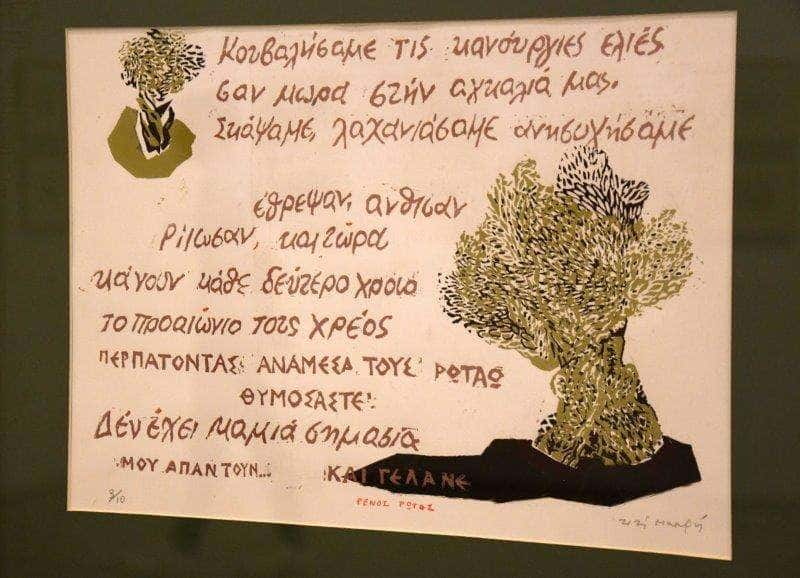 Κουβαλήσαμε τις καινούργιες ελιές
σαν μωρά στήν αγκαλιά μας.
Σκάψαμε, λαχανιάσαμε ανησυχήσαμε
έθρεψαν, άνθισαν
ρίζωσαν, και τώρα
κάνουν κάθε δεύτερο χρόνο
το προαιώνιο τους χρέος
ΠΕΡΠΑΤΟΝΤΑΣ ΑΝΑΜΕΣΑ ΤΟΥΣ ΡΩΤΑΩ
ΘΥΜΟΣΑΣΤΕ;
Δέν έχει καμιά σημασία
ΜΟΥ ΑΠΑΝΤΟΥΝ... ΚΑΙ ΓΕΛΑΝΕ
ΡΕΝΟΣ ΡΩΤΑΣ
9/10